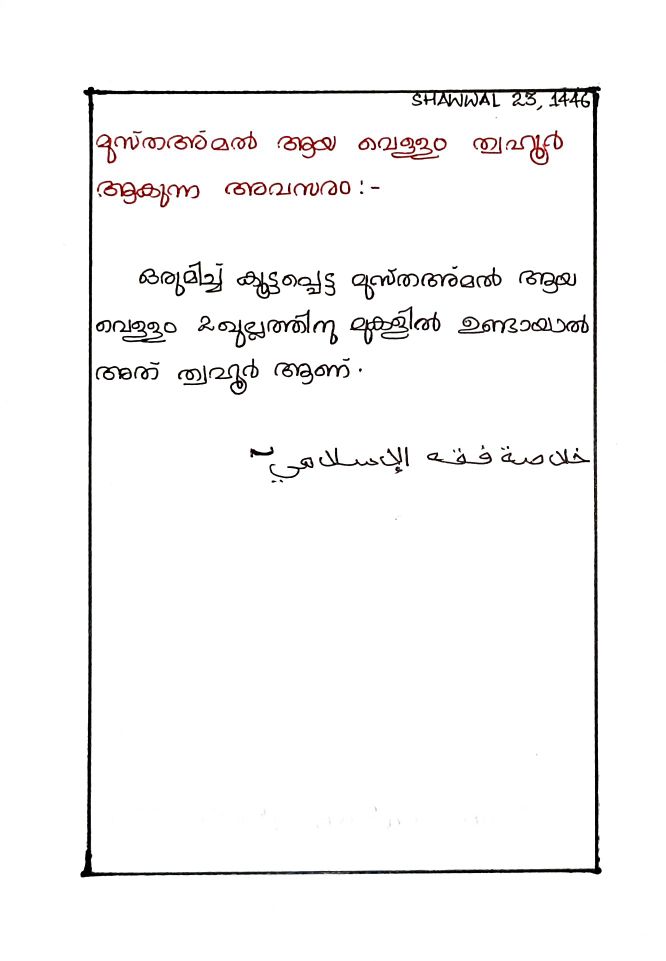 SHAWWAL 23, 1446
മുസ്തഅ്മൽ ആയ വെള്ളം ത്വഹൂർ
ആകുന്ന അവസരം :-
ഒരുമിച്ച് കൂട്ടപ്പെട്ട മുസ്തഅ്മൽ ആയ
വെള്ളം 2ഖുല്ലത്തിനു മുകളിൽ ഉണ്ടായാൽ
അത് ത്വഹൂർ ആണ്.
خلاصة فقه الإسلامي~